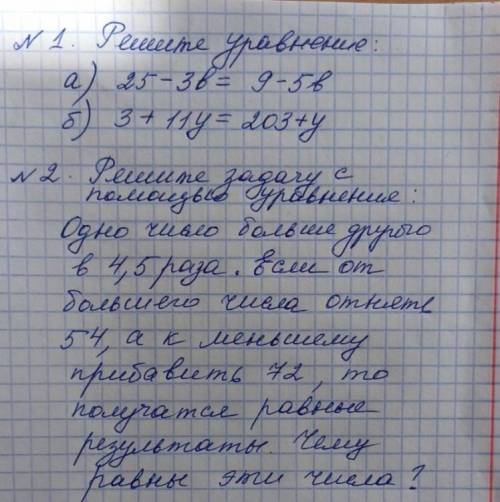 № 1. Решите уравнение:
а) 25 - 3в = 9 - 5в
б) 3 + 11у = 203 + у
№ 2. Решите задачу с
помощью уравнение:
Одно число больше другого
в 4,5 раза. Если от
большего числа отнять
54, а к меньшему
прибавить 72, то
получатся равные
результаты. Чему
равны эти числа?